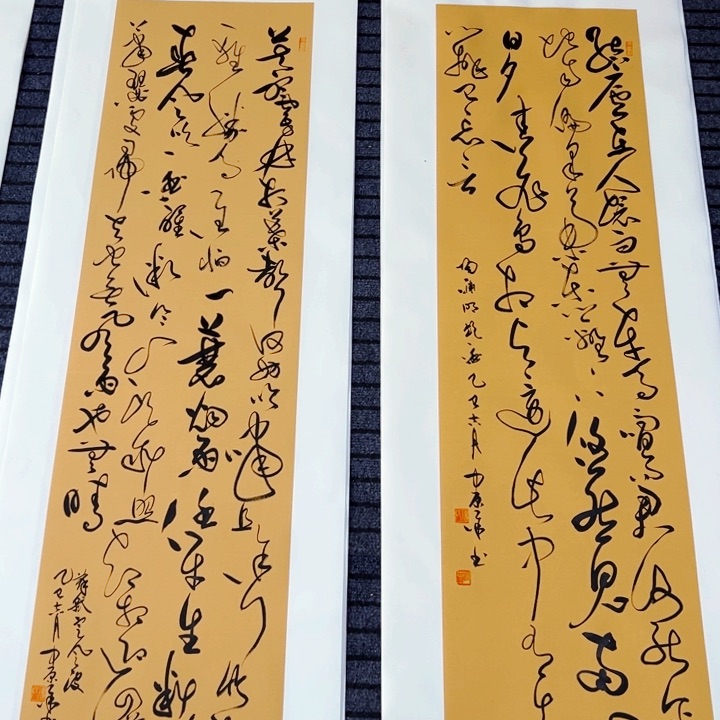 结庐在人境而无车马喧问君何能尔
地自偏采菊东篱下悠然见南
日夕佳飞鸟相与还此中有真
辨已忘言
陶渊明饮酒 乙巳六月 中原 书
莫听穿林打叶声何妨吟啸且徐行竹
鞋轻胜马谁怕一蓑烟雨任平生料
春风吹酒醒微冷山头斜照却相迎回
萧瑟处归去也无风雨也无晴
苏轼定风波
乙巳六月 中原